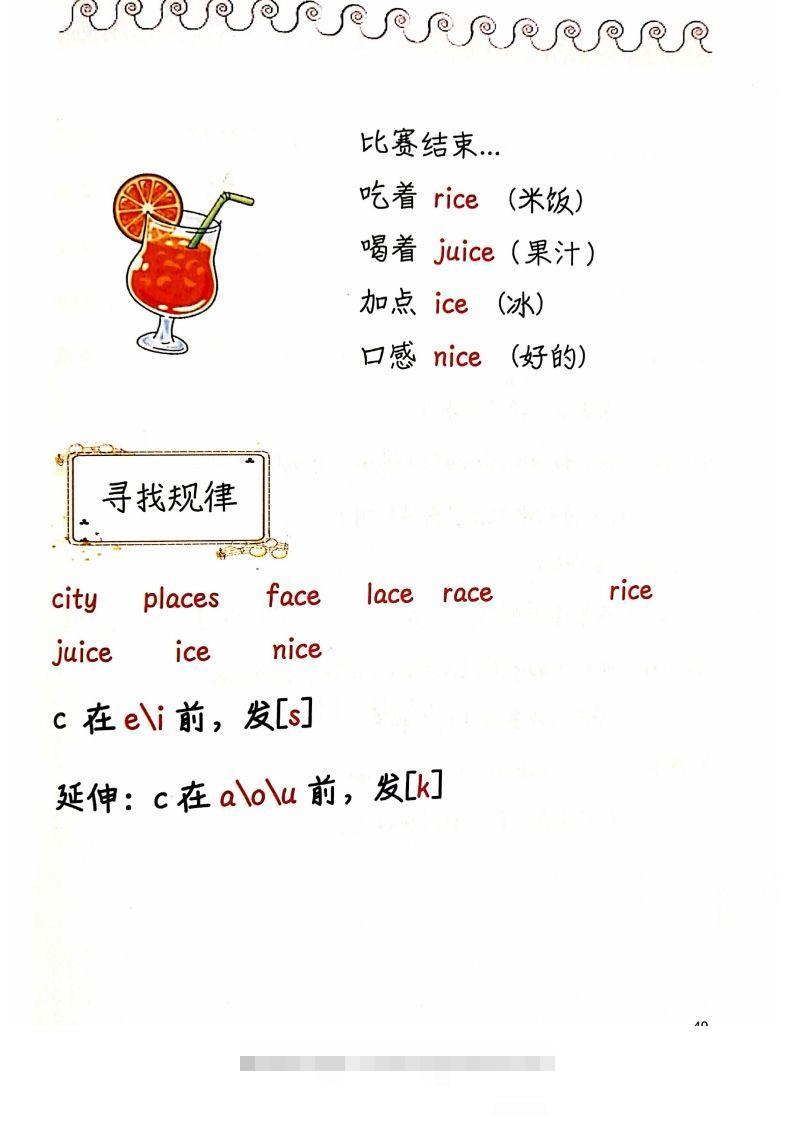 比赛结束...
吃着 rice （米饭）
喝着 juice（果汁）
加点 ice （冰）
口感 nice （好的）
寻找规律
city places face lace race rice
juice ice nice
c 在 e\i 前，发[s]
延伸：c 在 a\o\u 前，发[k]